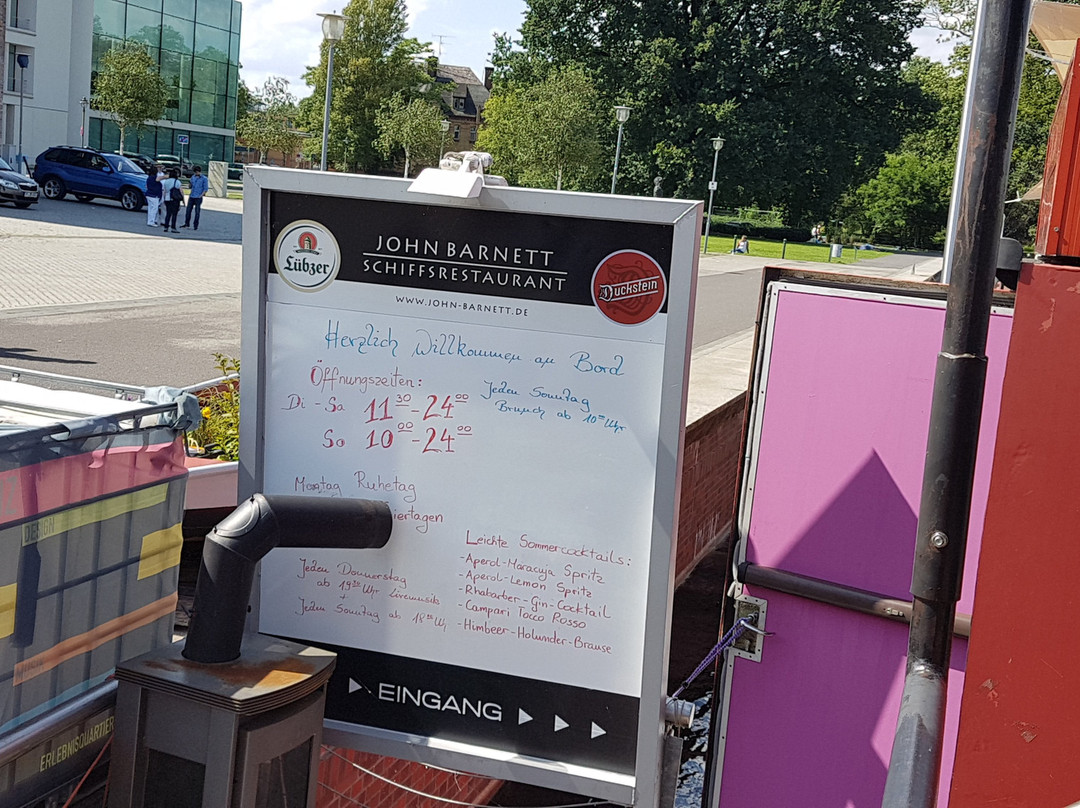 Lübzer
JOHN BARNETT
SCHIFFSRESTAURANT
WWW.JOHN-BARNETT.DE
Duckstein
Herzlich Willkommen an Bord
Öffnungszeiten:
Di - Sa 11 30 - 24 00
So 10 00 - 24 00
Jeden Sonntag
Brunch ab 10 00 Uhr
Montag Ruhetag
iertagen
Jeden Donnerstag
ab 19 30 Uhr Livemusik
+
Jeden Sonntag ab 18 00 Uhr
Leichte Sommercocktails:
-Aperol-Maracuja Spritz
-Aperol-Lemon Spritz
-Rhabarber-Gin-Cocktail
-Campari Tocco Rosso
-Himbeer-Holunder-Brause
EINGANG
DESIGN
ERLEBNISQUARTIER